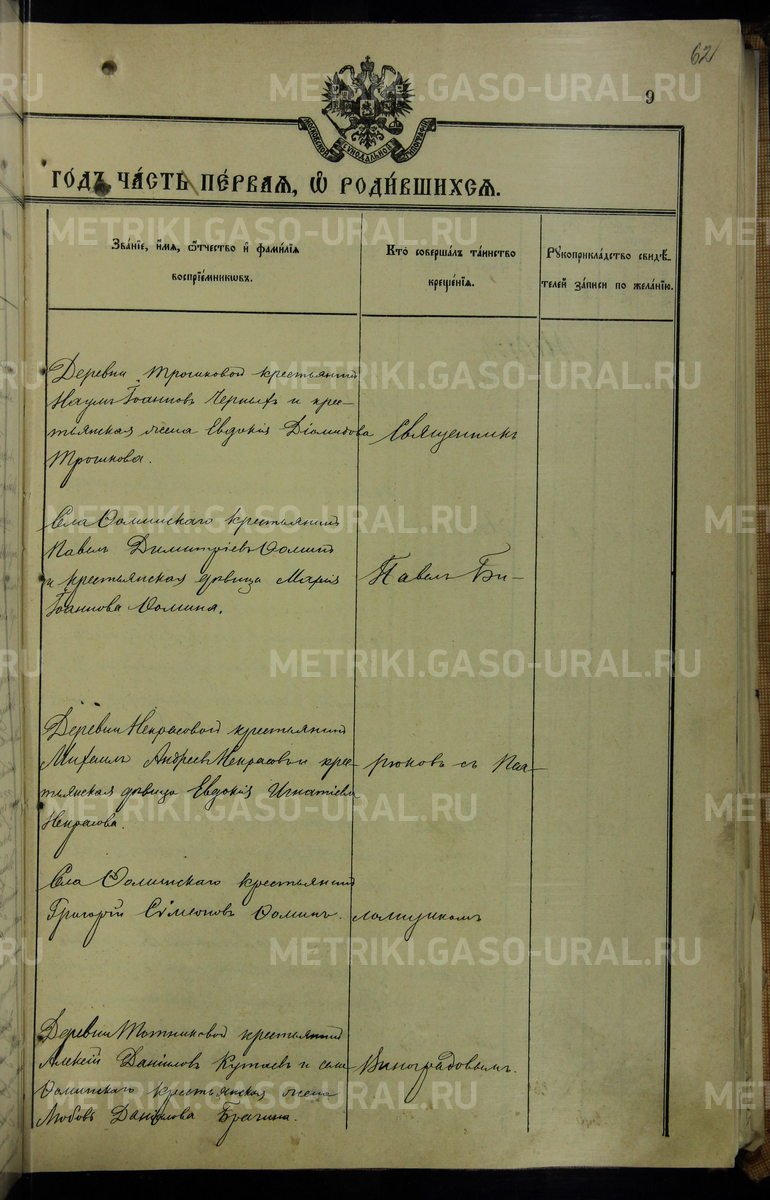 62
9
МОСКОВСКОЙ СѴНОДАЛЬНОЙ ТИПОГРАФІИ
ГО́ДЪ ЧА́СТЬ ПЕ́РВАѦ, Ѽ РОДИ́ВШИХСѦ.
Зва́нїе, и́мѧ, ѻ҆́тчество и҆ фами́лїѧ
воспрїе́мниковъ.
Кто̀ соверша́лъ та́инство
креще́нїѧ.
Рꙋкоприкла́дство свидѣ́-
телей за́писи по жела́нїю.
Деревни Трошковой крестьянинъ
Наумъ Іоанновъ Черныхъ и крес-
тьянская жена Евдокія Діомидова
Трошкова.
Священникъ
Села Ѳоминскаго крестьянинъ
Павелъ Димитріевъ Ѳоминъ
и крестьянская дѣвица Марія
Іоаннова Ѳомина.
Павелъ Би-
Деревни Некрасовой крестьянинъ
Михаилъ Андреевъ Некрасовъ и крес-
тьянская дѣвица Евдокія Игнатіева
Некрасова.
рюковъ съ Пса-
Села Ѳоминскаго крестьянинъ
Григорій Сімеоновъ Ѳоминъ.
ломщикомъ
Деревни крестьянинъ
Алексій Даніиловъ и села
Ѳоминскаго крестьянская жена
Любовь Данилова Брагина.
Виноградовымъ.
METRIKI.GASO-URAL.RU